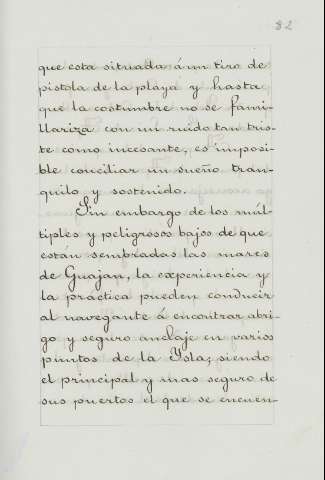 82
que esta situada á un tiro de
pistola de la playa y hasta
que la costumbre no se fami-
llariza con un ruido tan tris-
te como incesante, es imposi-
ble conciliar un sueño tran-
quilo y sostenido.
Sin embargo de los múl-
tiples y peligrosos bajos de que
están sembradas las mares
de Guajan, la experiencia y
la práctica pueden conducir
al navegante á encontrar abri-
go y seguro anclaje en varios
puntos de la Ysla; siendo
el principal y mas seguro de
sus puertos el que se encuen-